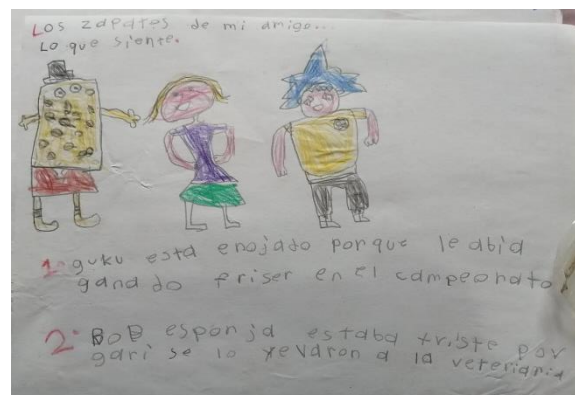 Los zapatos de mi amigo...
Lo que siente.
1- guku esta enojado porque le abia
ganado friser en el campeonato
2- Bob esponja estaba triste por
gari se lo yevaron a la veteriaria